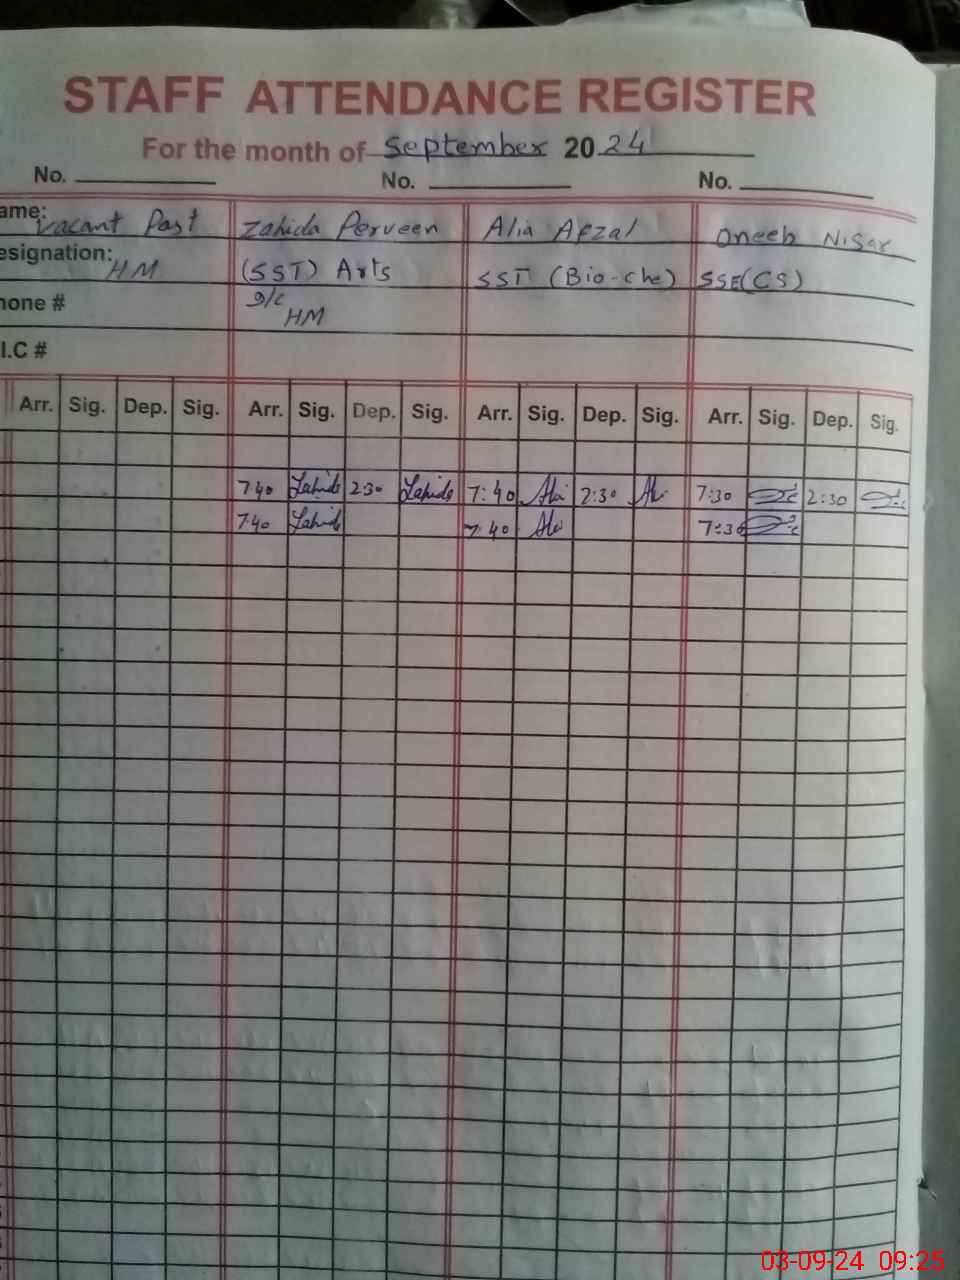 STAFF ATTENDANCE REGISTER
For the month of September 2024
No. No. No.
ame: Vacant Post Zahida Perveen Alia Afzal Oneeb Nisar
esignation: HM (SST) Arts SST (Bio-Che) SSE(CS)
hone # I/C HM
I.C #
Arr. Sig. Dep. Sig. Arr. Sig. Dep. Sig. Arr. Sig. Dep. Sig. Arr. Sig. Dep. Sig.
7:40 Zahida 2:30 Zahida 7:40 Alia 2:30 Alia 7:30 2:30
7:40 Zahida 7:40 Alia 7:30
03-09-24 09:25